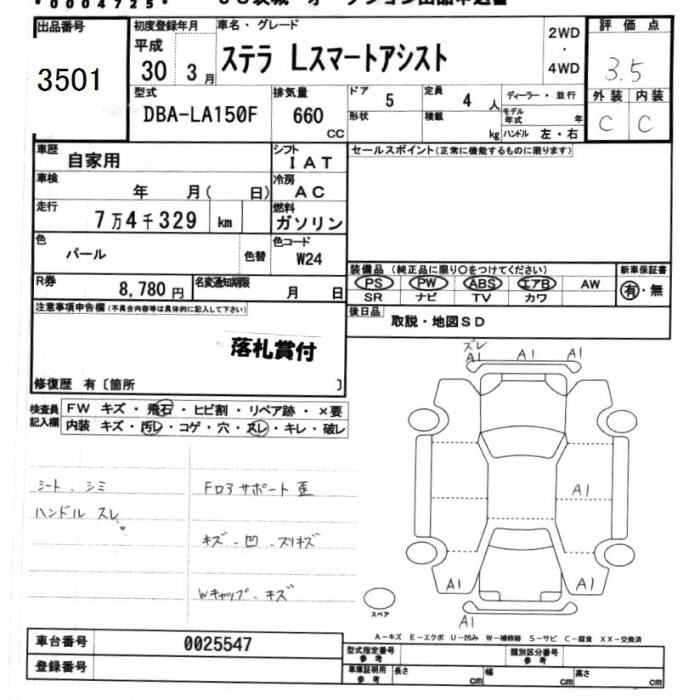 *0004725*
出品番号
3501
初度登録年月
平成
30 3月
車名・グレード
ステラ Lスマートアシスト
2WD
・
4WD
評価点
3.5
外装 内装
C C
型式
DBA-LA150F
排気量
660
CC
ドア 5
定員 4 人
形状
積載 kg
ディーラー・並行
モデル年式 年
ハンドル 左・右
車歴 自家用
シフト IAT
車検 年 月( 日)
冷房 AC
走行 7万4千329 km
燃料 ガソリン
色 パール 色替
色コード W24
R券 8,780円
名変通知期限 月 日
セールスポイント(正常に機能するものに限ります)
装備品(純正品に限り○をつけてください)
PS PW ABS エアB AW
SR ナビ TV カワ
新車保証書
有・無
後日品 取説・地図SD
注意事項申告欄(不具合内容等は具体的に記入して下さい)
落札賞付
修復歴 有〔箇所 〕
検査員記入欄
FW キズ・飛石・ヒビ割・リペア跡・×要
内装 キズ・汚レ・コゲ・穴・スレ・キレ・破レ
シート.シミ
ハンドル スレ
Fロアサポート 歪
キズ.凹.スリキズ
Wキャップ.キズ
ズレ
A1 A1 A1
A1
A1 A1
A1
スペア
A-キズ E-エクボ U-凹み W-補修跡 S-サビ C-腐食 XX-交換済
車台番号 0025547
登録番号
型式指定番号 参考
類別区分番号 参考
車庫証明用 参考
長さ cm 幅 cm 高さ cm